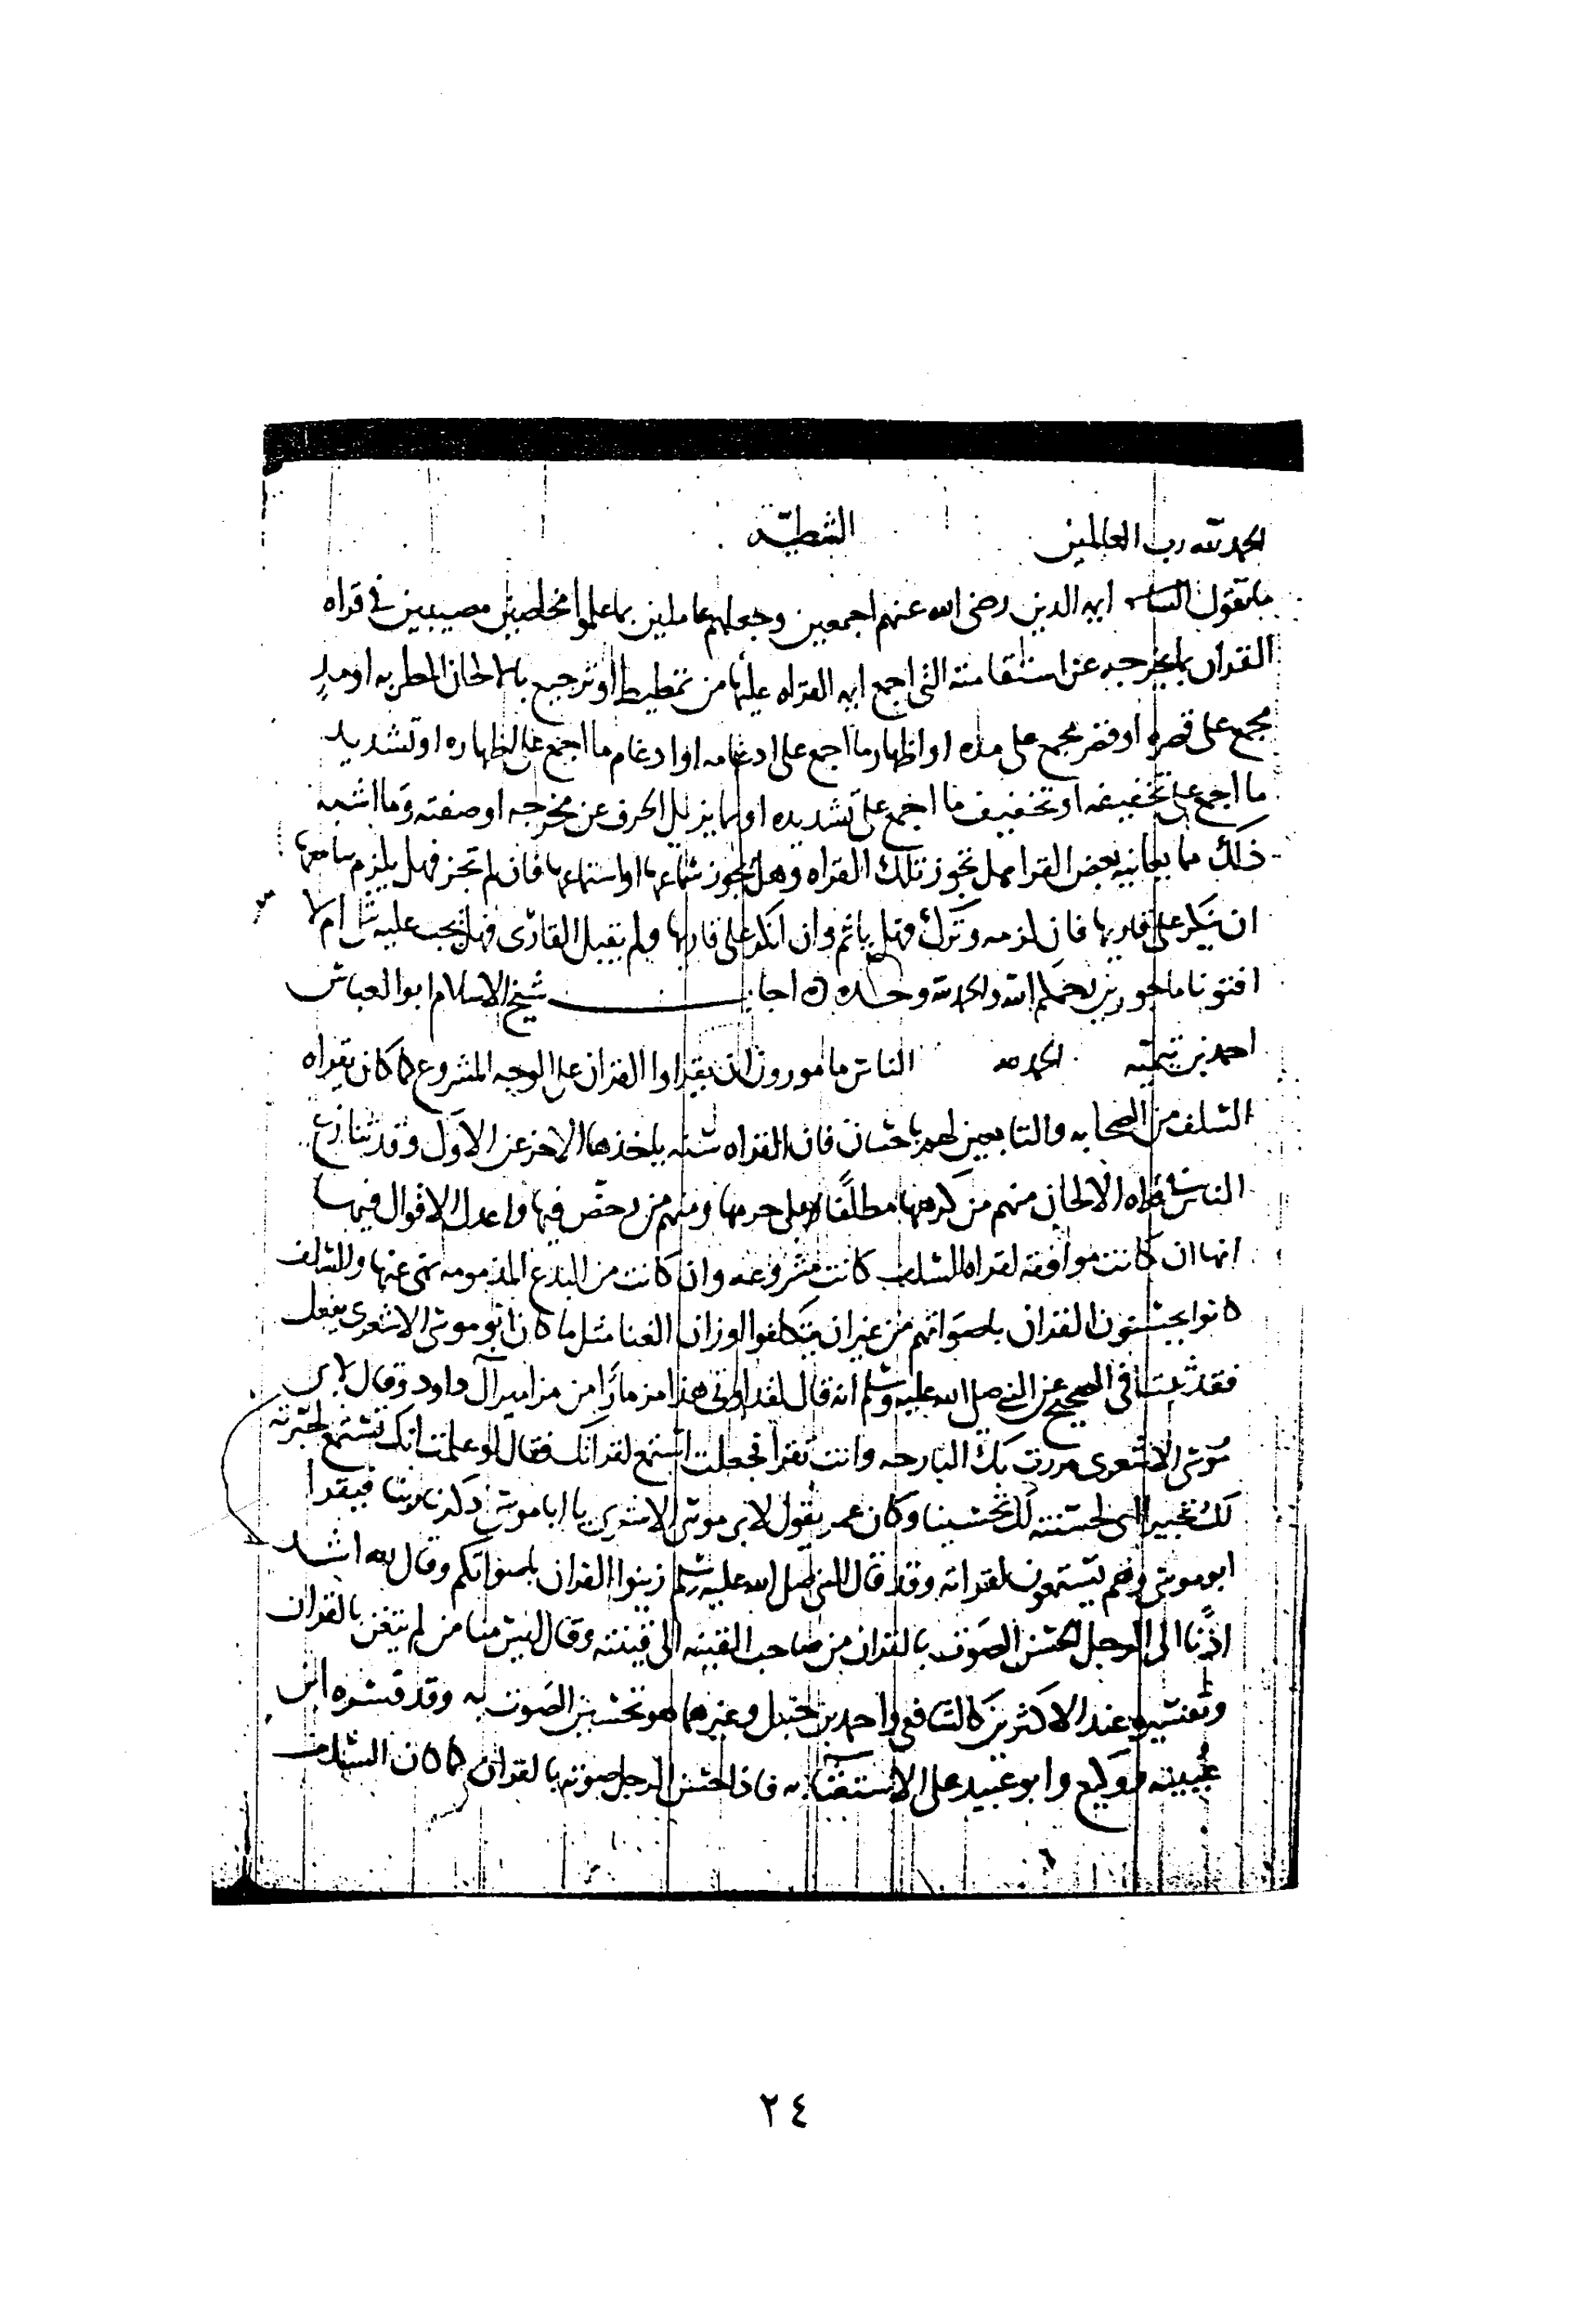 الحمد لله رب العالمين
ما يقول الساده ايمه الدين رضي الله عنهم اجمعين وجعلهم عاملين بما علموا مخلصين مصيبين في قراه
القران بما يخرجه عن استقامته التي اجمع ايمه القراه عليها من تمطيط او ترجيع بالالحان المطربه او مد
مجمع على قصره او قصر مجمع على مده او اظهار ما اجمع على ادغامه او ادغام ما اجمع على اظهاره او تشديد
ما اجمع على تخفيفه او تخفيف ما اجمع على تشديده او بما يزيل الحرف عن مخرجه او صفته وما اشبه
ذلك مما يعانيه بعض القرا هل تجوز تلك القراه وهل يجوز سماعها او استماعها فان لم تجز فهل يلزم سامعها
ان ينكر على قاريها فان لزمه وترك فهل ياثم وان انكر على قاريها ولم يقبل القارى فهل يجب عليه شى ام لا
افتونا ماجورين رحمكم الله والحمد لله وحده اجاب شيخ الاسلام ابو العباس
احمد بن تيميه الحمد لله الناس مامورون ان يقراوا القران على الوجه المشروع كما كان يقراه
السلف من الصحابه والتابعين لهم باحسان فان القراه سنه ياخذها الاخر عن الاول وقد تنازع
الناس في قراه الالحان منهم من كرهها مطلقًا بل حرمها ومنهم من رخص فيها واعدل الاقوال فيها
انها ان كانت موافقه لقراه السلف كانت مشروعه وان كانت من البدع المذمومه نهى عنها والسلف
كانوا يحسنون القران باصواتهم من غير ان يتكلفوا اوزان الغنا مثل ما كان ابو موسى الاشعرى يفعل
فقد ثبت في الصحيح عن النبي صلى الله عليه وسلم انه قال لقد اوتى هذا مزمارًا من مزامير آل داود وقال لابى
موسى الاشعرى مررت بك البارحه وانت تقرا فجعلت استمع لقراتك فقال لو علمت انك تستمع لحبرته
لك تحبيرا اى لحسنته لك تحسينا وكان عمر يقول لابى موسى الاشعرى يا ابا موسى ذكرنا ربنا فيقرا
ابو موسى وهم يستمعون لقراته وقد قال النبى صلى الله عليه وسلم زينوا القران باصواتكم وقال لله اشد
اذنًا الى الرجل الحسن الصوت بالقران من صاحب القينه الى قينته وقال ليس منا من لم يتغن بالقران
وتفسيره عند الاكثرين كالشافعى واحمد بن حنبل وغيرهما هو تحسين الصوت به وقد فسره ابن
عيينه ووكيع وابو عبيد على الاستغنا به فاذا حسن الرجل صوته بالقران كما كان السلف
٢٤